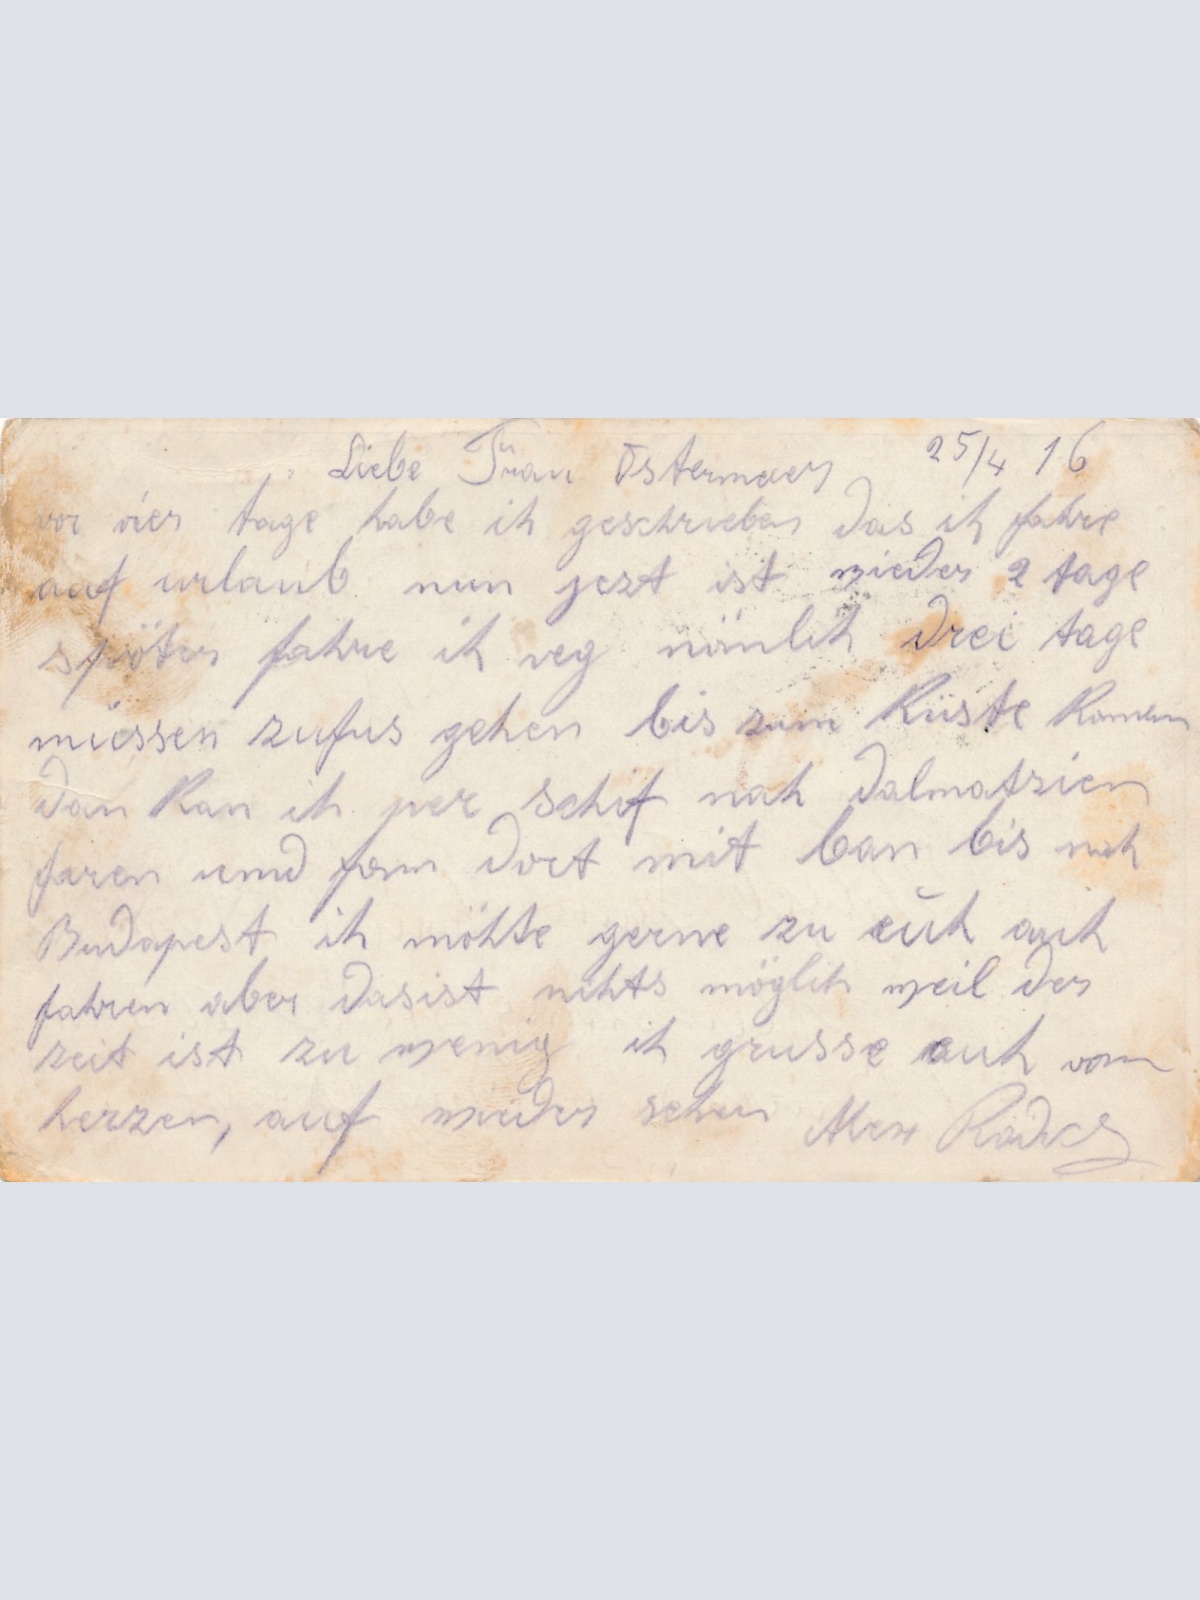 Liebe Frau Ostermaer 25/4 16
vor vier tage habe ih geschrieben das ih fahre
auf urlaub nun jezt ist wieder 2 tage
später fahre ih veg nämlih drei tage
müessen zufus gehen bis zum Küste Komen
dan Kan ih per schif nah dalmatzien
faren und fom dort mit ban bis nah
Budapest ih möhte gerne zu eüh auh
fahren aber dasist nihts möglih weil der
zeit ist zu wenig ih grusse euh vom
herzen, auf wieder sehen Alex